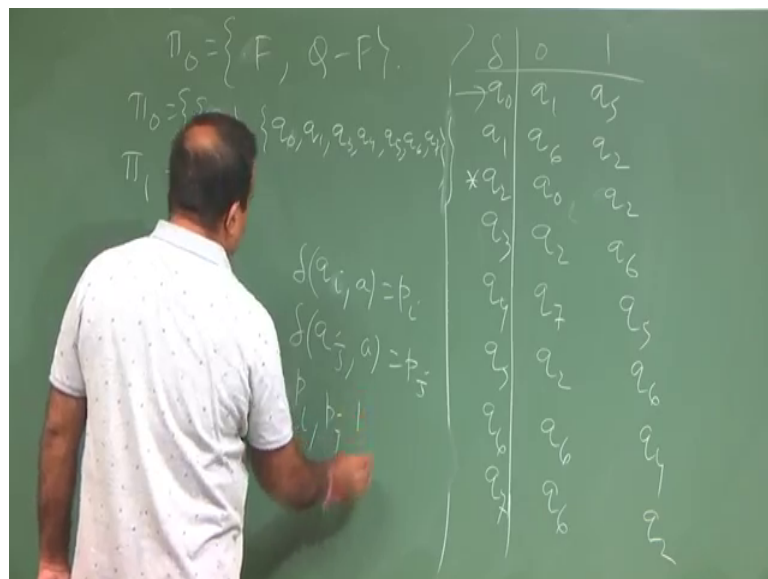 π₀ = { F, Q – F }.
π₀ = { {q₀, q₁, q₃, q₄, q₅, q₆, q₇} }
π₁
δ(qᵢ, a) = pᵢ
δ(qⱼ, a) = pⱼ
pᵢ, pⱼ
δ 0 1
→ q₀ q₁ q₅
q₁ q₆ q₂
* q₂ q₀ q₂
q₃ q₂ q₆
q₄ q₇ q₅
q₅ q₂ q₆
q₆ q₆ q₄
q₇ q₆ q₂